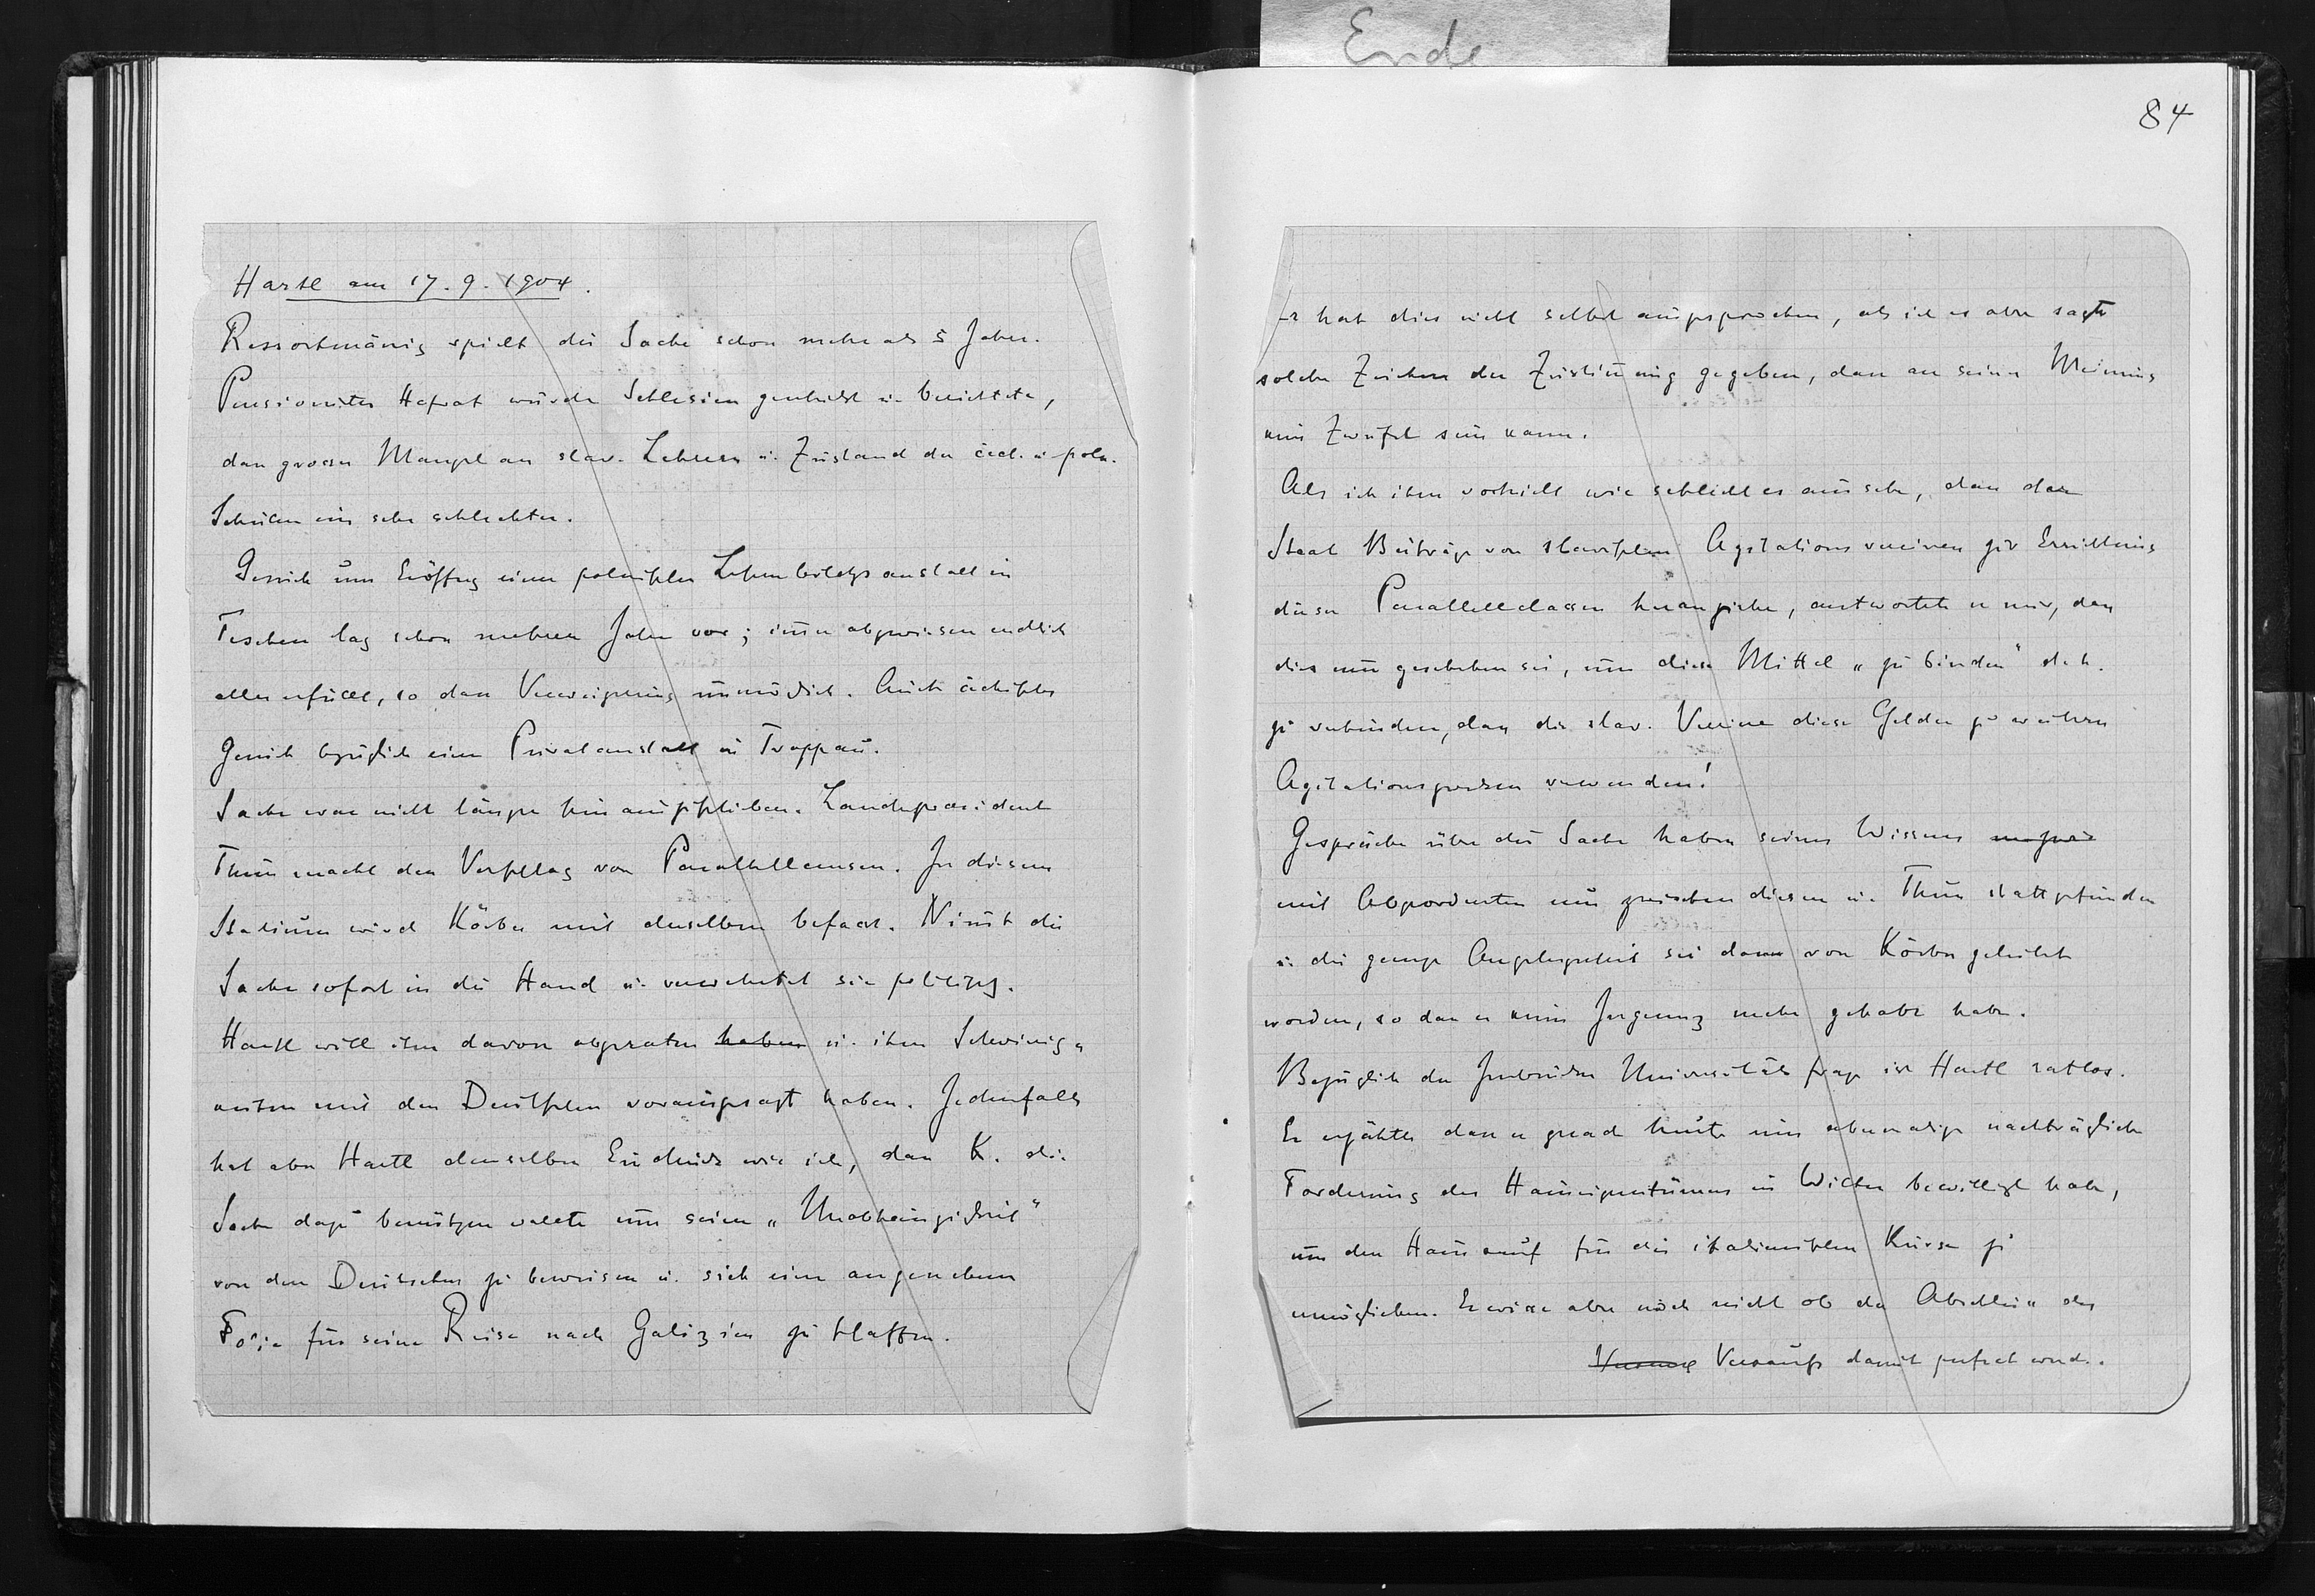 Ende
84
Hartl am 17. 9. 1904.
Ressortmässig spielt die Sache schon mehr als 5 Jahre.
Pensionirter Hofrat wurde Schlesien geschickt u. berichtete,
dass grosser Mangel an slav. Lehrern u. Zustand der čech. u. poln.
Schulen ein sehr schlechter.
Gesuch um Eröffng einer polnischen Lehrerbildgsanstalt in
Teschen lag schon mehrere Jahre vor; immer abgewiesen endlich
alles erfüllt, so dass Verweigerung unmöglich. Auch čechisches
Gesuch bezüglich einer Privatanstalt in Troppau.
Sache war nicht länger hinauszuschieben. Landespraesident
Thun macht den Vorschlag von Parallelcursen. In diesem
Stadium wird Körber mit derselben befasst. Nimmt die
Sache sofort in die Hand u. verwertet sie politisch.
Hartl will ihm davon abgeraten haben u. ihm Schwierig„
keiten mit den Deutschen vorausgesagt haben. Jedenfalls
hat aber Hartl denselben Eindruck wie ich, dass K. die
Sache dazu benützen wollte um seine „Unabhängigkeit"
von den Deutschen zu beweisen u. sich eine angenehme
für seine Reise nach Galizien zu schaffen.
Er hat dies nicht selbst ausgesprochen, als ich es aber sagte
solche Zeichen der Zustimmung gegeben, dass an seiner Meinung
kein Zweifel sein kann.
Als ich ihm vorhielt wie schlecht es aussehe, dass der
Staat Beiträge von slavischen Agitationsvereinen zur Errichtung
dieser Parallelclassen heranziehe, antwortete er mir, dass
dies nur geschehen sei, um diese Mittel „zu binden" d. h.
zu verhindern, dass die slav. Vereine diese Gelder zu weiteren
Agitationszwecken verwenden!
Gespräche über die Sache haben seines Wissens
mit Abgeordneten nur zwischen diesen u. Thun stattgefunden
u. die ganze Angelegenheit sei dann von Körber geleitet
worden, so dass er keine Ingerenz mehr gehabt habe.
Bezüglich der Innsbrucker Universitätsfrage ist Hartl ratlos.
Er erzählte dass er grad heute eine abermalige nachträgliche
Forderung des Hauseigentümers in Wilten bewilligt habe,
um den Hauskauf für die italienischen Kurse zu
ermöglichen. Er wisse aber noch nicht ob der Abschluss des
Verkaufs damit perfect werde.